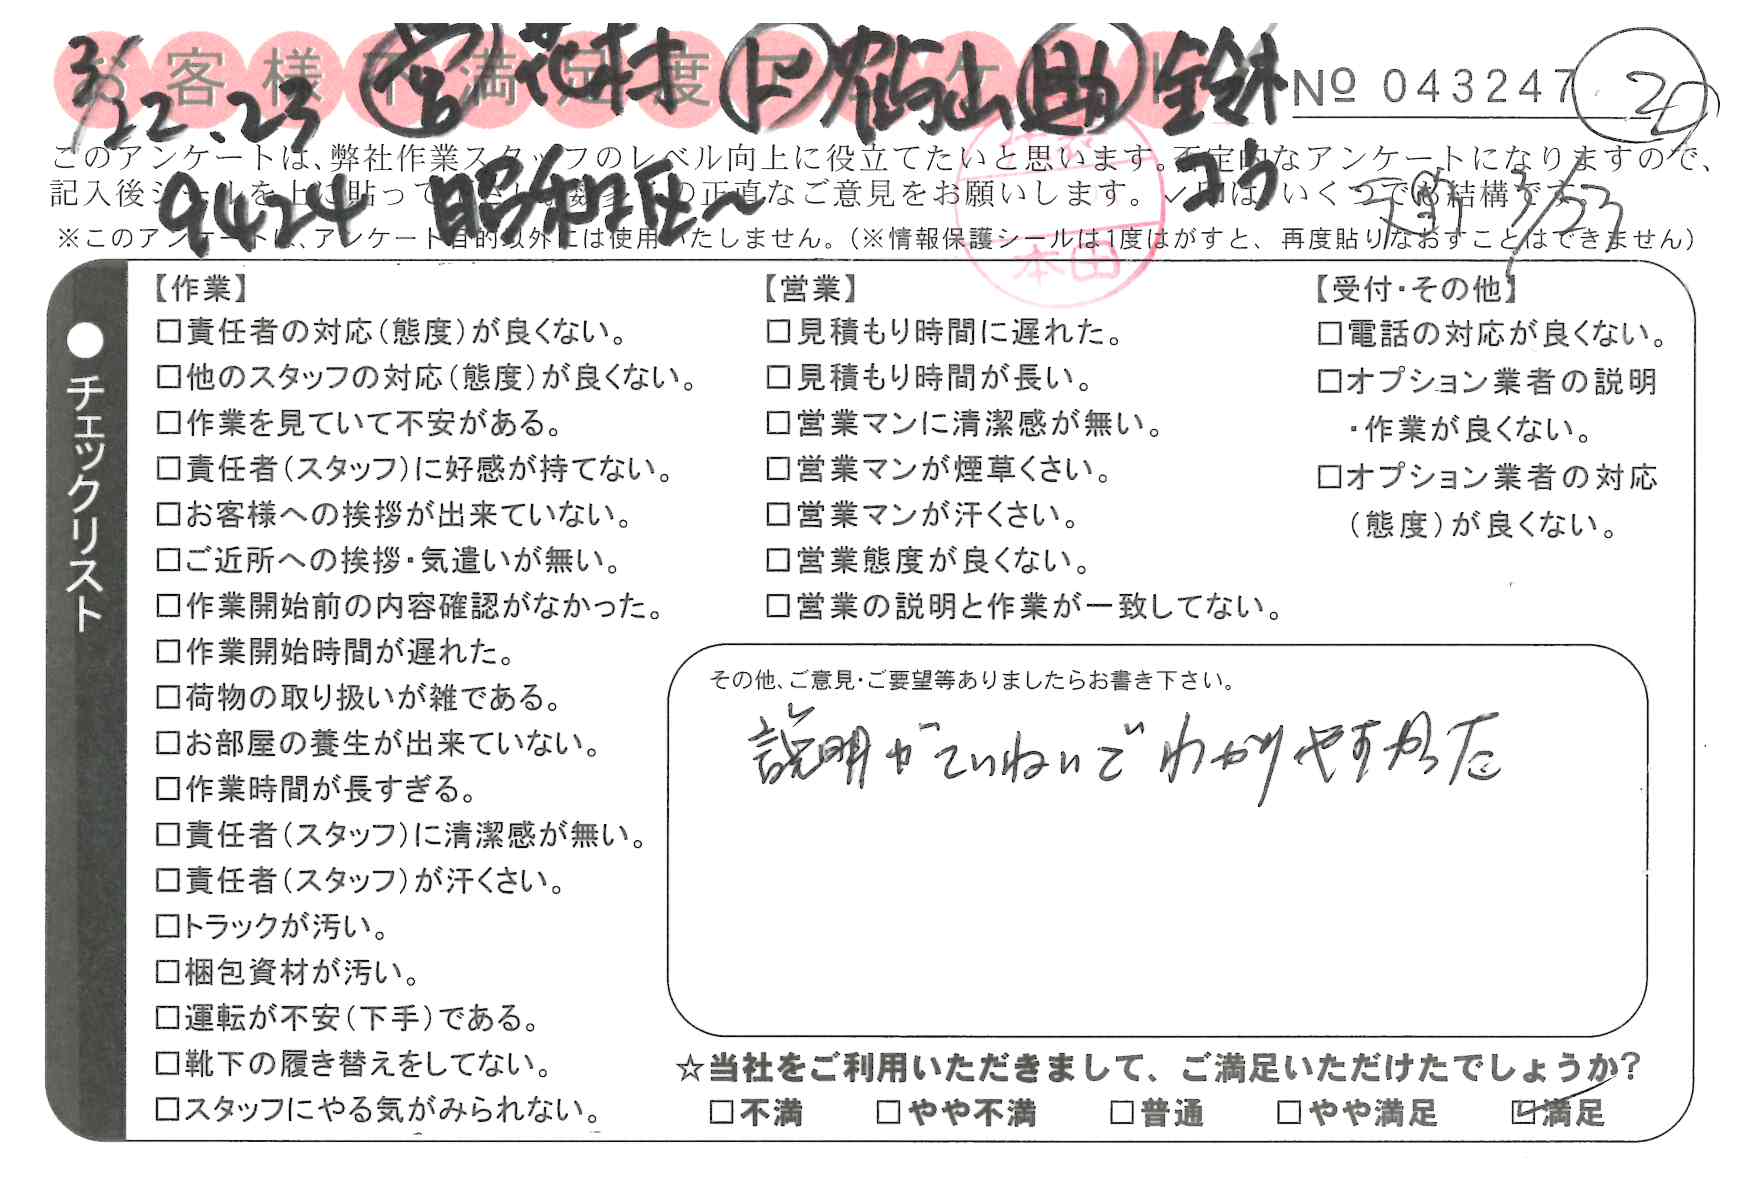 お客様不満足度アンケート
3/22.23 営 花村 ド 鶴山 助 鈴木
No 043247 20
このアンケートは、弊社作業スタッフのレベル向上に役立てたいと思います。否定的なアンケートになりますので、
記入後シールを上に貼って
の正直なご意見をお願いします。✓印は、いくつでも結構です。
9424 昭和区〜 コウ 3/23
※このアンケートは、アンケート目的以外には使用いたしません。(※情報保護シールは1度はがすと、再度貼りなおすことはできません)
本田
●チェックリスト
【作業】
□責任者の対応(態度)が良くない。
□他のスタッフの対応(態度)が良くない。
□作業を見ていて不安がある。
□責任者(スタッフ)に好感が持てない。
□お客様への挨拶が出来ていない。
□ご近所への挨拶・気遣いが無い。
□作業開始前の内容確認がなかった。
□作業開始時間が遅れた。
□荷物の取り扱いが雑である。
□お部屋の養生が出来ていない。
□作業時間が長すぎる。
□責任者(スタッフ)に清潔感が無い。
□責任者(スタッフ)が汗くさい。
□トラックが汚い。
□梱包資材が汚い。
□運転が不安(下手)である。
□靴下の履き替えをしてない。
□スタッフにやる気がみられない。
【営業】
□見積もり時間に遅れた。
□見積もり時間が長い。
□営業マンに清潔感が無い。
□営業マンが煙草くさい。
□営業マンが汗くさい。
□営業態度が良くない。
□営業の説明と作業が一致してない。
【受付・その他】
□電話の対応が良くない。
□オプション業者の説明
・作業が良くない。
□オプション業者の対応
(態度)が良くない。
その他、ご意見・ご要望等ありましたらお書き下さい。
説明がていねいでわかりやすかった
☆当社をご利用いただきまして、ご満足いただけたでしょうか?
□不満 □やや不満 □普通 □やや満足 ☑満足